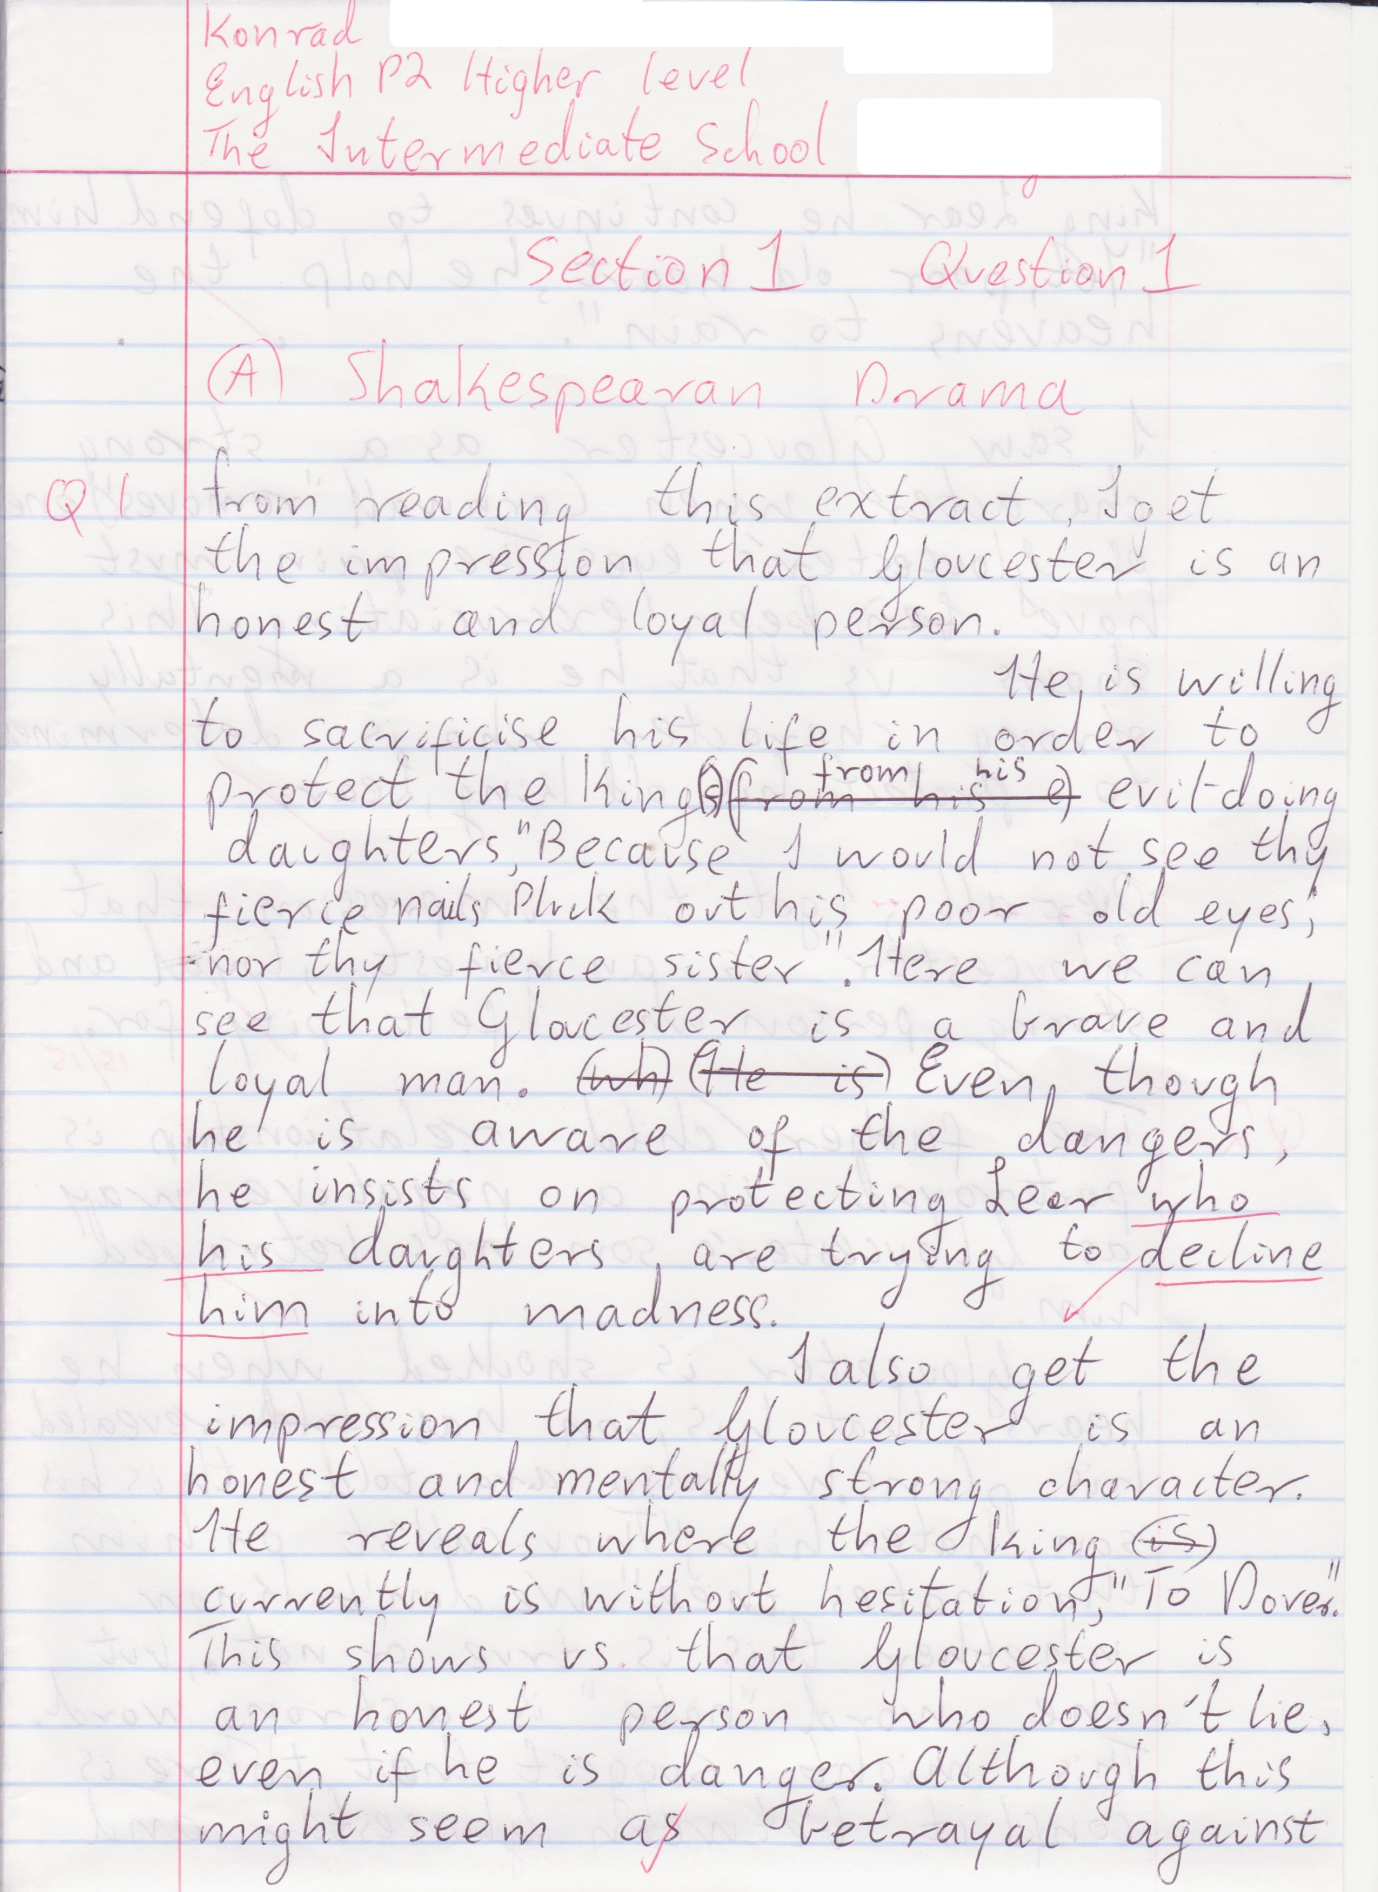 Konrad
English P2 Higher level
The Intermediate School
Section 1 Question 1
(A) Shakespearan Drama
Q1 from reading this extract, I get
the impression that Gloucester is an
honest and loyal person.
He is willing
to sacrificise his life in order to
from his
protect the King(s) (from his e) evil-doing
daughters, "Because I would not see thy
fierce nails Pluck out his poor old eyes;
nor thy fierce sister". Here we can
see that Gloucester is a brave and
loyal man. (wh) (He is) Even though
he is aware of the dangers,
he insists on protecting Lear who
his daughters are trying to decline
him into madness.
I also get the
impression that Gloucester is an
honest and mentally strong character.
He reveals where the king (is)
currently is without hesitation, "To Dover".
This shows us that Gloucester is
an honest person who doesn't lie,
even if he is danger. Although this
might seem as betrayal against